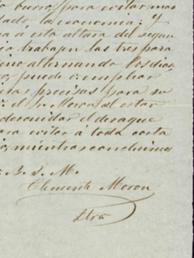 bueno, para evitar mas
lado, la economia; y
esta altura del segun
trabajen las tres para
alternando los dias
puede emplear
precisas para su
el Sr. Moron al estar
descuidar el desague
para evitar á toda costa
mientras continuemos
B. S. M.
Clemente Moron